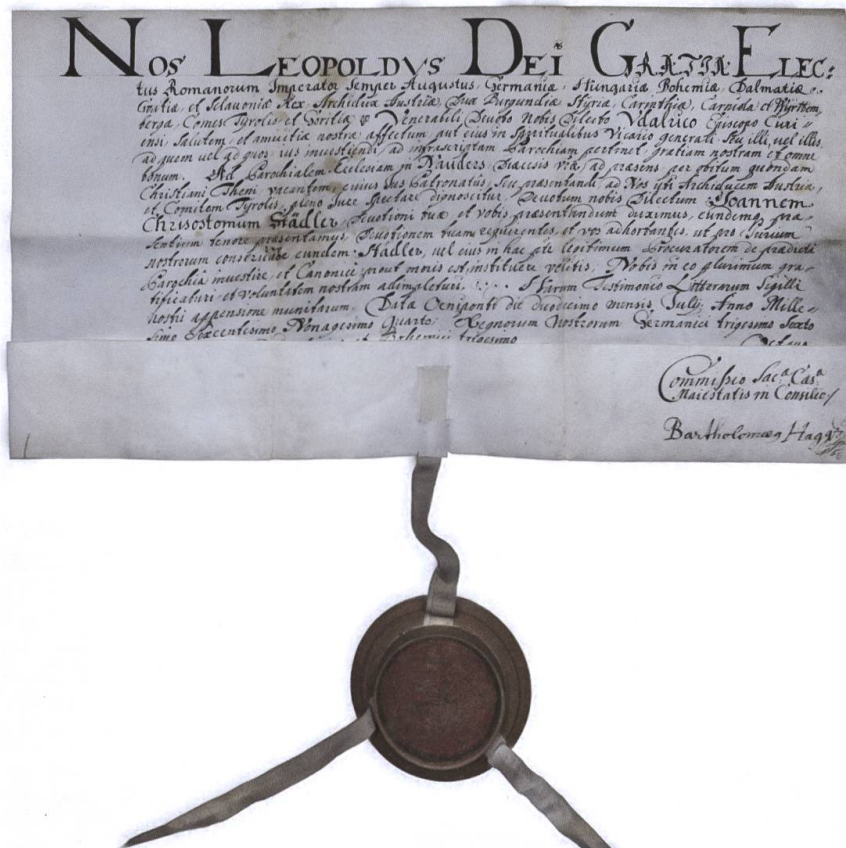 NOS LEOPOLDVS DEI GRATIA ELEC:
tus Romanorum Imperator Semper Augustus, Germaniæ, Hungariæ, Bohemiæ, Dalmatiæ,
Croatiæ, et Sclavoniæ Rex, Archidux Austriæ, Dux Burgundiæ, Styriæ, Carinthiæ, Carniolæ et Wyrttem
bergæ, Comes Tyrolis et Goritiæ &. Venerabili Devoto Nobis Dilecto Vdalrico Episcopo Curi=
ensi, Salutem, et amicitiæ nostræ affectum, aut eius in Spiritualibus Vicario generali, Seu illi, vel illis,
ad quem vel ad quos ius investiendi, ad infrascriptam Parochiam pertinet, gratiam nostram et omne
bonum. Ad Parochialem Ecclesiam in Nauders, Diæcesis tuæ, ad præsens per obitum quondam
Christiani Theni vacantem, cuius Ius Patronatus, Seu præsentandi, ad Nos uti Archiducem Austriæ,
et Comitem Tyrolis, pleno Iure Spectare dignoscitur, Devotum nobis Dilectum Ioannem
Chrisostomum Städler, Devotioni tuæ, et vobis præsentandum duximus, eundemq præ=
sentium tenore præsentamus, Devotionem tuam requirentes, et vos adhortantes, ut pro Iurium
nostrorum eundem Städler, vel eius in hac pte legitimum Procuratorem de prædicta
Parochia investire, et Canonicè, prout moris est, instituere velitis, Nobis in eo plurimum gra=
tificaturi, et voluntatem nostram adimpleturi. Harum Testimonio Litterarum Sigilli
nostri appensione munitarum. Data Oeniponti die duodecimo mensis July, Anno Mille=
simo Sexcentesimo, Nonagesimo Quarto, Regnorum Nostrorum Germanici trigesimo Sexto
et Bohemici trigesimo Octavo
Commissio Sac.ᵃ Cæs.ᵃ
Maiestatis in Consilio